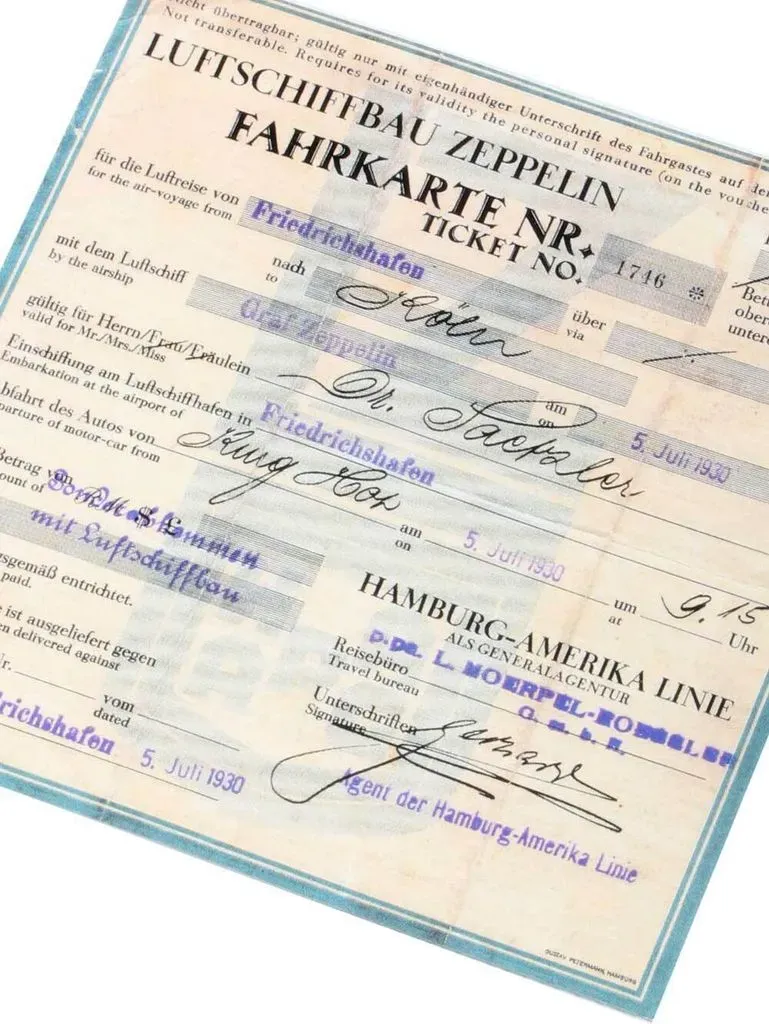 nicht übertragbar; gültig nur mit eigenhändiger Unterschrift des Fahrgastes auf
Not transferable. Requires for its validity the personal signature (on the
LUFTSCHIFFBAU ZEPPELIN
FAHRKARTE NR.
TICKET NO.
1746 *
für die Luftreise von
for the air-voyage from
Friedrichshafen
nach
to
Köln
über
via
mit dem Luftschiff
by the airship
Graf Zeppelin
am
on
5. Juli 1930
gültig für Herrn/Frau/Fräulein
valid for Mr./Mrs./Miss
Dr.
Einschiffung am Luftschiffhafen in
Embarkation at the airport of
Friedrichshafen
bfahrt des Autos von
parture of motor-car from
am
on
5. Juli 1930
um
at
9.15
Uhr
Betrag von
ount of
RM $ £
mit Luftschiffbau
sgemäß entrichtet.
paid.
e ist ausgeliefert gegen
en delivered against
vom
dated
richshafen
5. Juli 1930
HAMBURG-AMERIKA LINIE
ALS GENERALAGENTUR
Reisebüro
Travel bureau
G. m. b. H.
Unterschriften
Signature
Agent der Hamburg-Amerika Linie
GUSTAV PETERMANN, HAMBURG